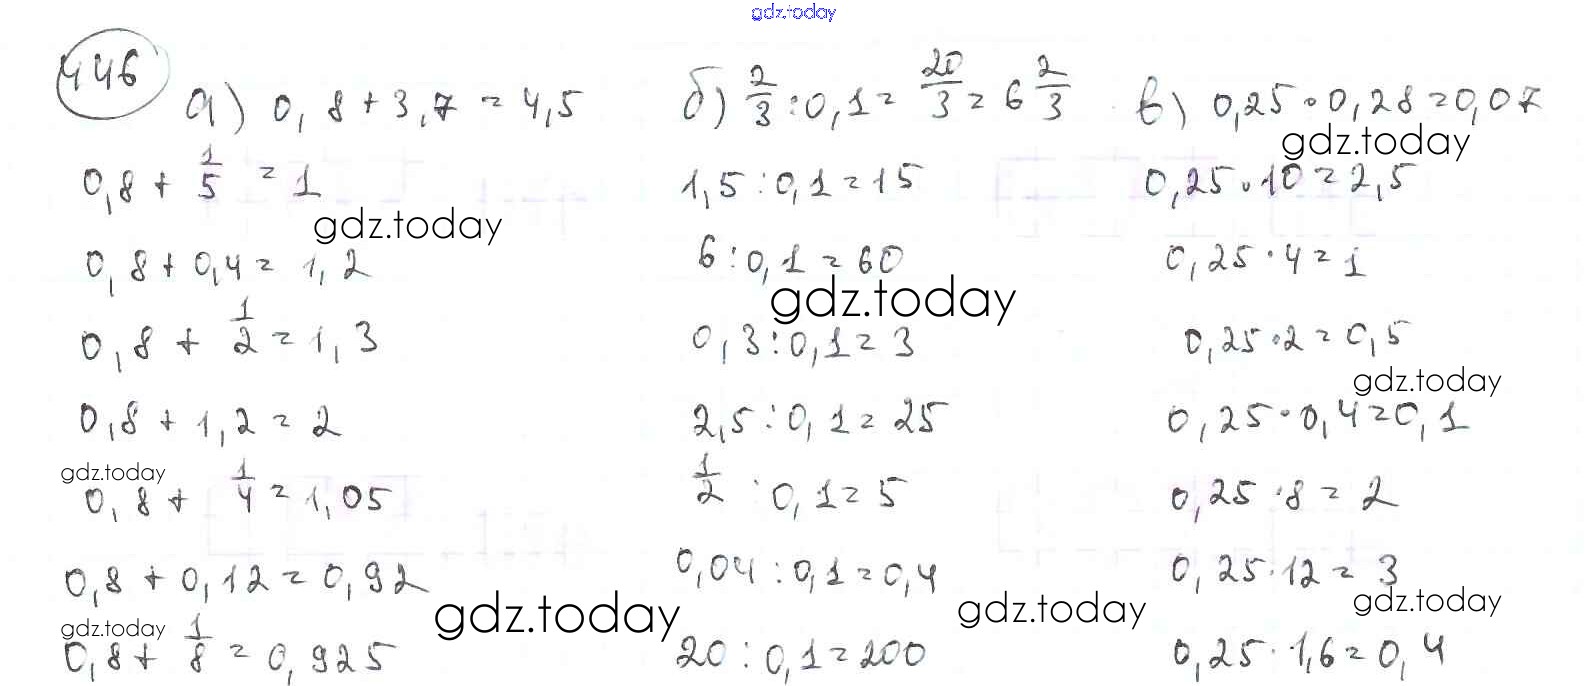 gdz.today
446
а) 0,8 + 3,7 = 4,5
0,8 + 1/5 = 1
gdz.today
0,8 + 0,4 = 1,2
0,8 + 1/2 = 1,3
0,8 + 1,2 = 2
gdz.today
0,8 + 1/4 = 1,05
0,8 + 0,12 = 0,92
gdz.today
gdz.today
0,8 + 1/8 = 0,925
б) 2/3 : 0,1 = 20/3 = 6 2/3
1,5 : 0,1 = 15
6 : 0,1 = 60
gdz.today
0,3 : 0,1 = 3
2,5 : 0,1 = 25
1/2 : 0,1 = 5
0,04 : 0,1 = 0,4
gdz.today
20 : 0,1 = 200
в) 0,25 · 0,28 = 0,07
gdz.today
0,25 · 10 = 2,5
0,25 · 4 = 1
0,25 · 2 = 0,5
gdz.today
0,25 · 0,4 = 0,1
0,25 · 8 = 2
0,25 · 12 = 3
gdz.today
0,25 · 1,6 = 0,4